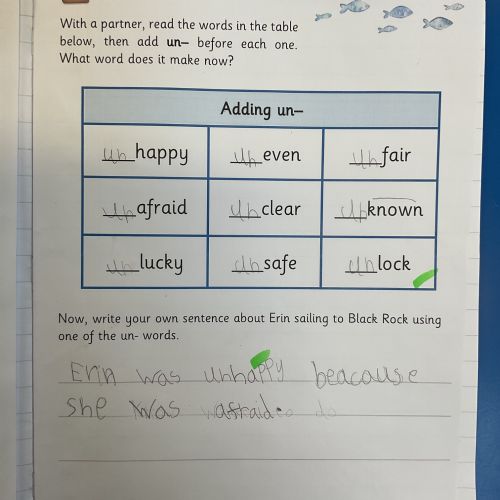 With a partner, read the words in the table
below, then add un– before each one.
What word does it make now?
Adding un–
unhappy uneven unfair
unafraid unclear unknown
unlucky unsafe unlock
Now, write your own sentence about Erin sailing to Black Rock using
one of the un- words.
Erin was unhappy beacause
she was afraid.